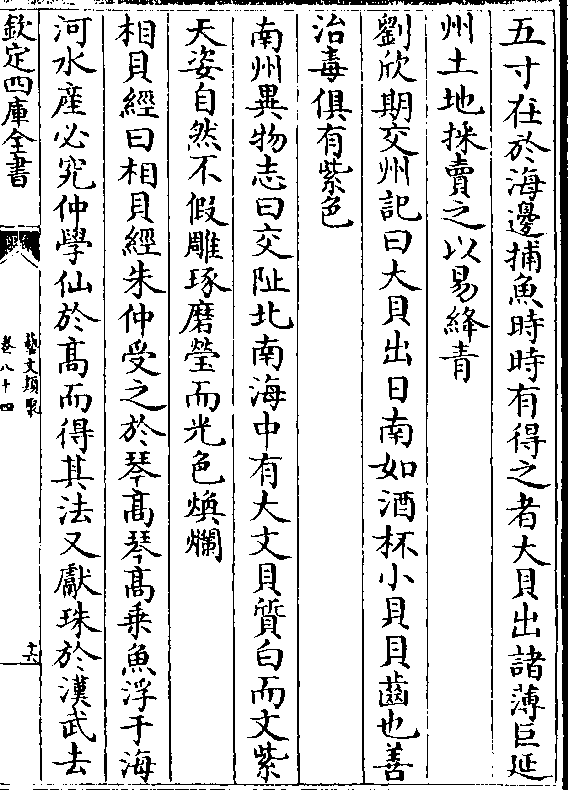 五寸在於海邊捕魚時時有得之者大貝出諸薄巨延
州土地採賣之以易絳青
劉欣期交州記曰大貝出日南如酒杯小貝貝齒也善
治毒俱有紫色
南州異物志曰交阯北南海中有大文貝質白而文紫
天姿自然不假雕琢磨瑩而光色煥爛
相貝經曰相貝經朱仲受之於琴髙琴髙乗魚浮于海
河水産必究仲學仙於髙而得其法又獻珠於漢武去
欽定四庫全書
藝文類聚
卷八十四
十六